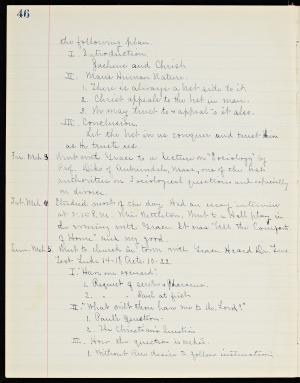 46
the following plan.
I. Introduction.
Zacheus and Christ
II. Mans Human Nature.
1. There is always a best side to it.
2. Christ appeals to the best in man.
3. We may trust & appeal to it also.
III. Conclusion.
Let the best in us conquer and trust them
as He trusts us.
Fri. Mch. 3 Went with Grace to a lecture on "Sociology" by
Prof. Dike of Auburndale, Mass, one of the best
authorities on Sociological questions and especially
on divorce.
Sat. Mch. 4 Studied most of the day. Had an essay interview
at 3.15 P.M. with Nettleton. Went to a Hall play in
the evening with Grace. It was "All the Comforts
of Home" and very good.
Sun. Mch. 5 Went to church in town with Grace. Heard Dr.
Text Luke 14-18, Acts 10-22
I "Have me excused"
1. Request of
2. " " Saul at first
II. "What wilt thou have me to do Lord?"
1. Paul's question.
2. The Christian's question
III. How the question is asked.
1. Without any desire to follow instructions.